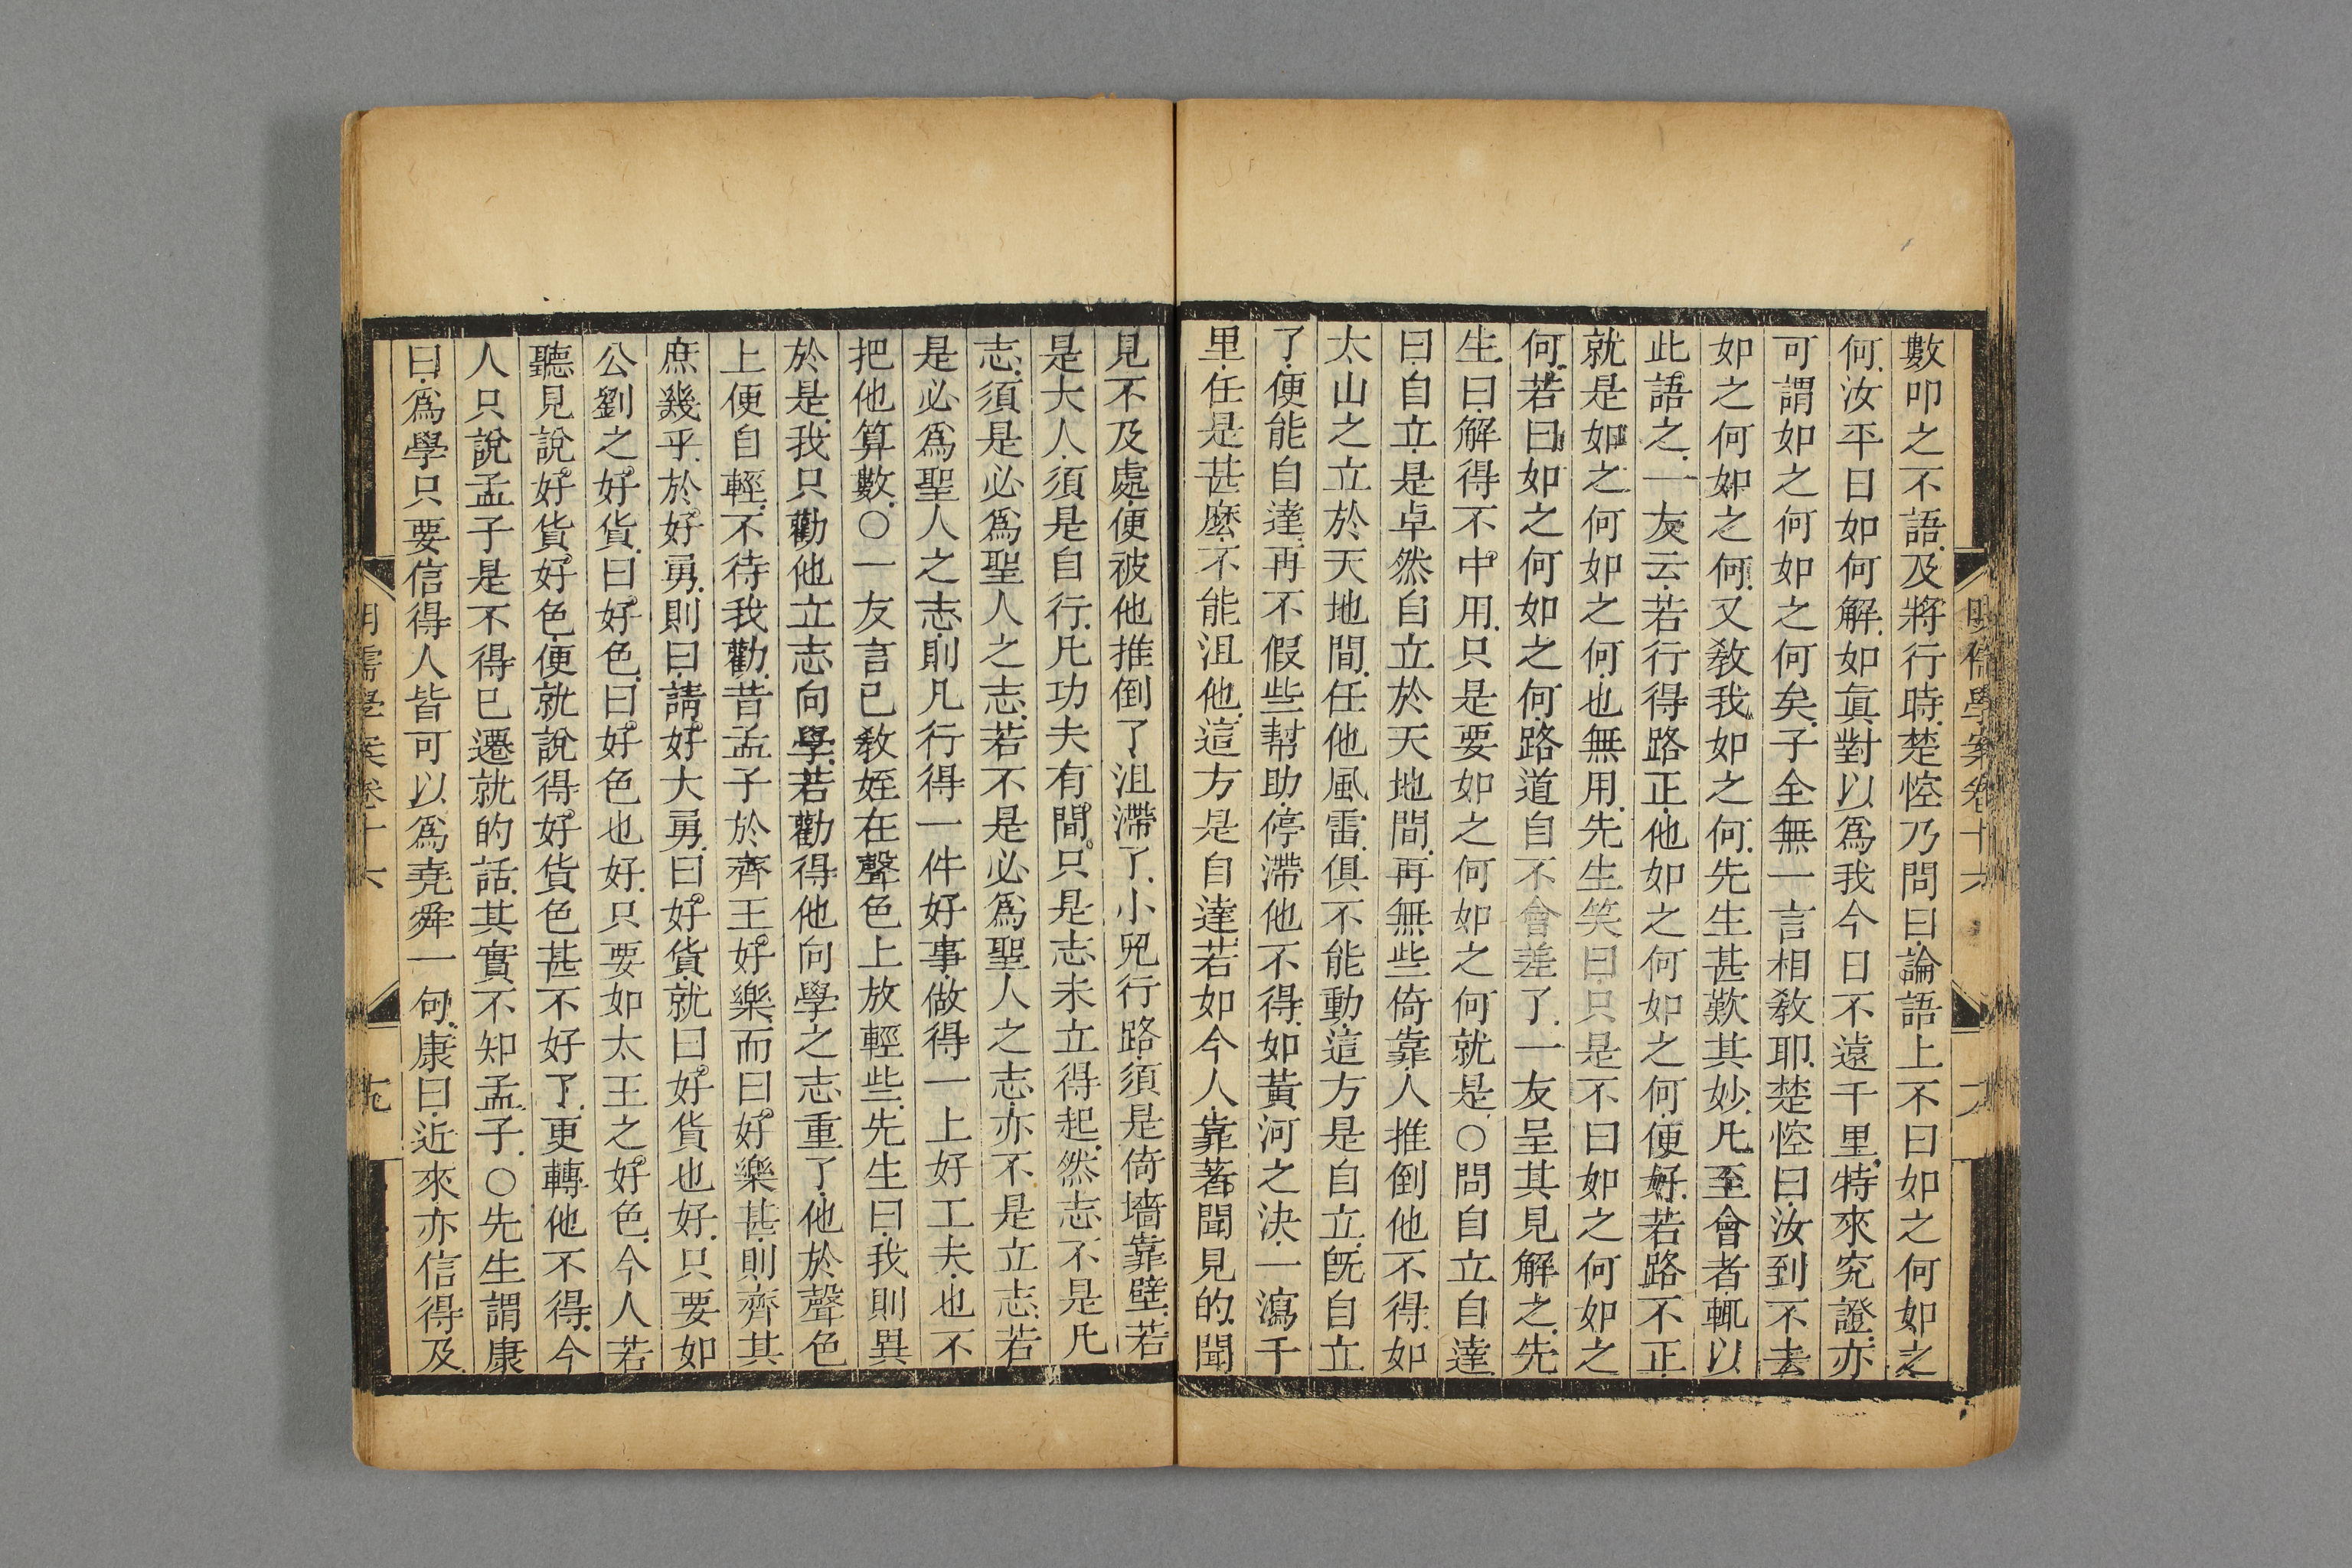 數叩之不語及將行時楚倥乃問曰論語上不曰如之何如之
何汝平日如何解如眞對以爲我今日不遠千里特來究證亦
可謂如之何如之何矣子全無一言相敎耶楚倥曰汝到不去
如之何如之何又敎我如之何先生甚歎其妙凡至會者輒以
此語之一友云若行得路正他如之何如之何便好若路不正
就是如之何如之何也無用先生笑曰只是不曰如之何如之
何若曰如之何如之何路道自不會差了一友呈其見解之先
生曰解得不中用只是要如之何如之何就是○問自立自達
曰自立是卓然自立於天地間再無些倚靠人推倒他不得如
太山之立於天地間任他風雷俱不能動這方是自立旣自立
了便能自達再不假些幫助停滯他不得如黃河之決一瀉千
里任是甚麽不能沮他這方是自達若如今人靠著聞見的聞
見不及處便被他推倒了沮滯了小兒行路須是倚墻靠壁若
是大人須是自行凡功夫有間只是志未立得起然志不是凡
志須是必爲聖人之志若不是必爲聖人之志亦不是立志若
是必爲聖人之志則凡行得一件好事做得一上好工夫也不
把他算數○一友言已敎姪在聲色上放輕些先生曰我則異
於是我只勸他立志向學若勸得他向學之志重了他於聲色
上便自輕不待我勸昔孟子於齊王好樂而曰好樂甚則齊其
庶幾乎於好勇則曰請好大勇曰好貨就曰好貨也好只要如
公劉之好貨曰好色曰好色也好只要如太王之好色今人若
聽見說好貨好色便就說得好貨色甚不好了更轉他不得今
人只說孟子是不得已遷就的話其實不知孟子○先生謂康
曰爲學只要信得人皆可以爲堯舜一句康曰近來亦信得及
明儒學案卷十六
明儒學案卷十六